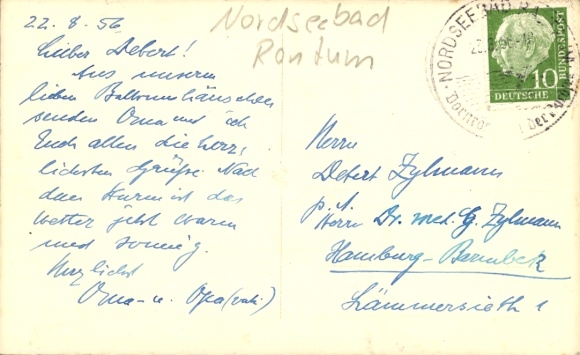 22. 8. 56.
Nordseebad
Rantum
Lieber Detert!
Aus unserm
lieben
senden Oma und ich
Euch allen die herz-
lichsten Grüße. Nach
dem Sturm ist das
Wetter jetzt warm
und sonnig.
Herzlichst
Oma u. Opa
NORDSEEBAD RA
10
DEUTSCHE BUNDESPOST
Herrn
Detert Zylmann
p. A.
Herrn Dr. med. G. Zylmann
Hamburg-Barmbeck
Lämmersieth 1